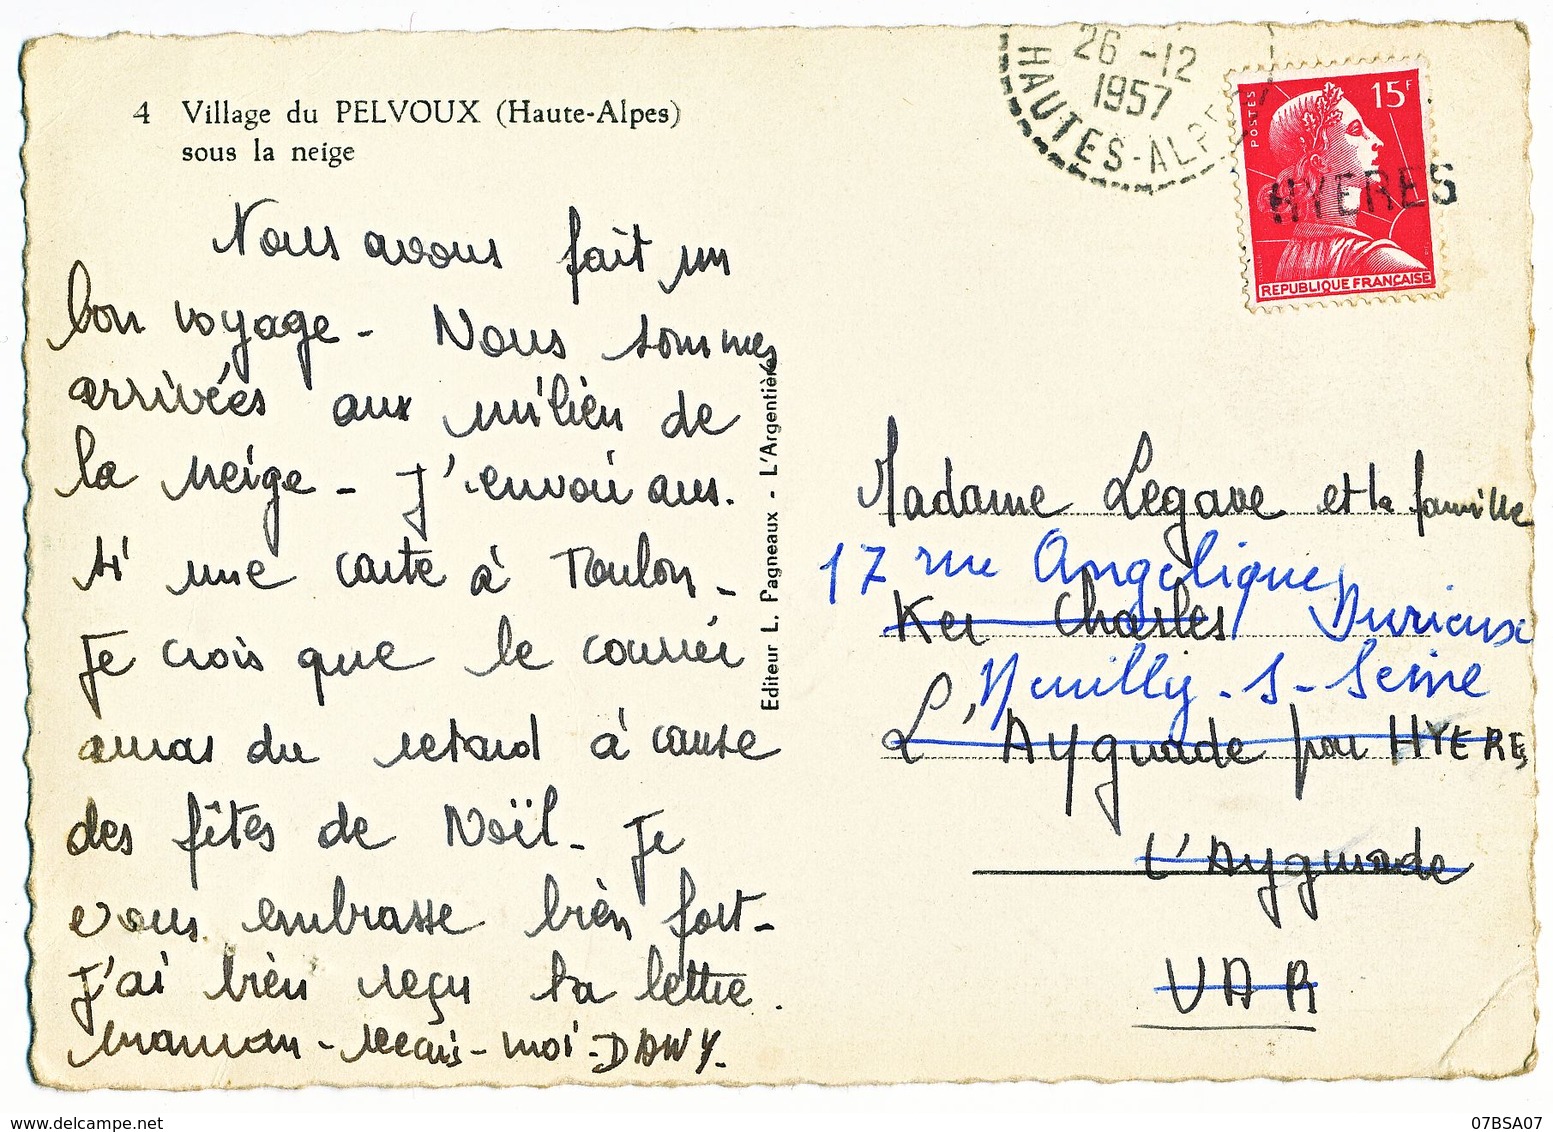 4 Village du PELVOUX (Haute-Alpes)
sous la neige
Nous avons fait un
bon voyage - Nous sommes
arrivées aux milien de
la neige - J'envoii aus.
si une carte à Toulon -
Je crois que le courrier
auras du retard à cause
des fêtes de Noël - Je
vous embrasse bièn fort -
J'ai bièn reçu ta lettre.
maman - - moi - DAWY.
Editeur L. Pagneaux - L'Argentière
26 -12
1957
HAUTES-ALPES
POSTES
15F
HYERES
REPUBLIQUE FRANÇAISE
Madame Legave et la famille
17 rue Angélique
Ker Charles Durieux
Neuilly - s - Seine
L'Ayguade par HYERES
L'Ayguade
VAR
delcampe.net
07BSA07